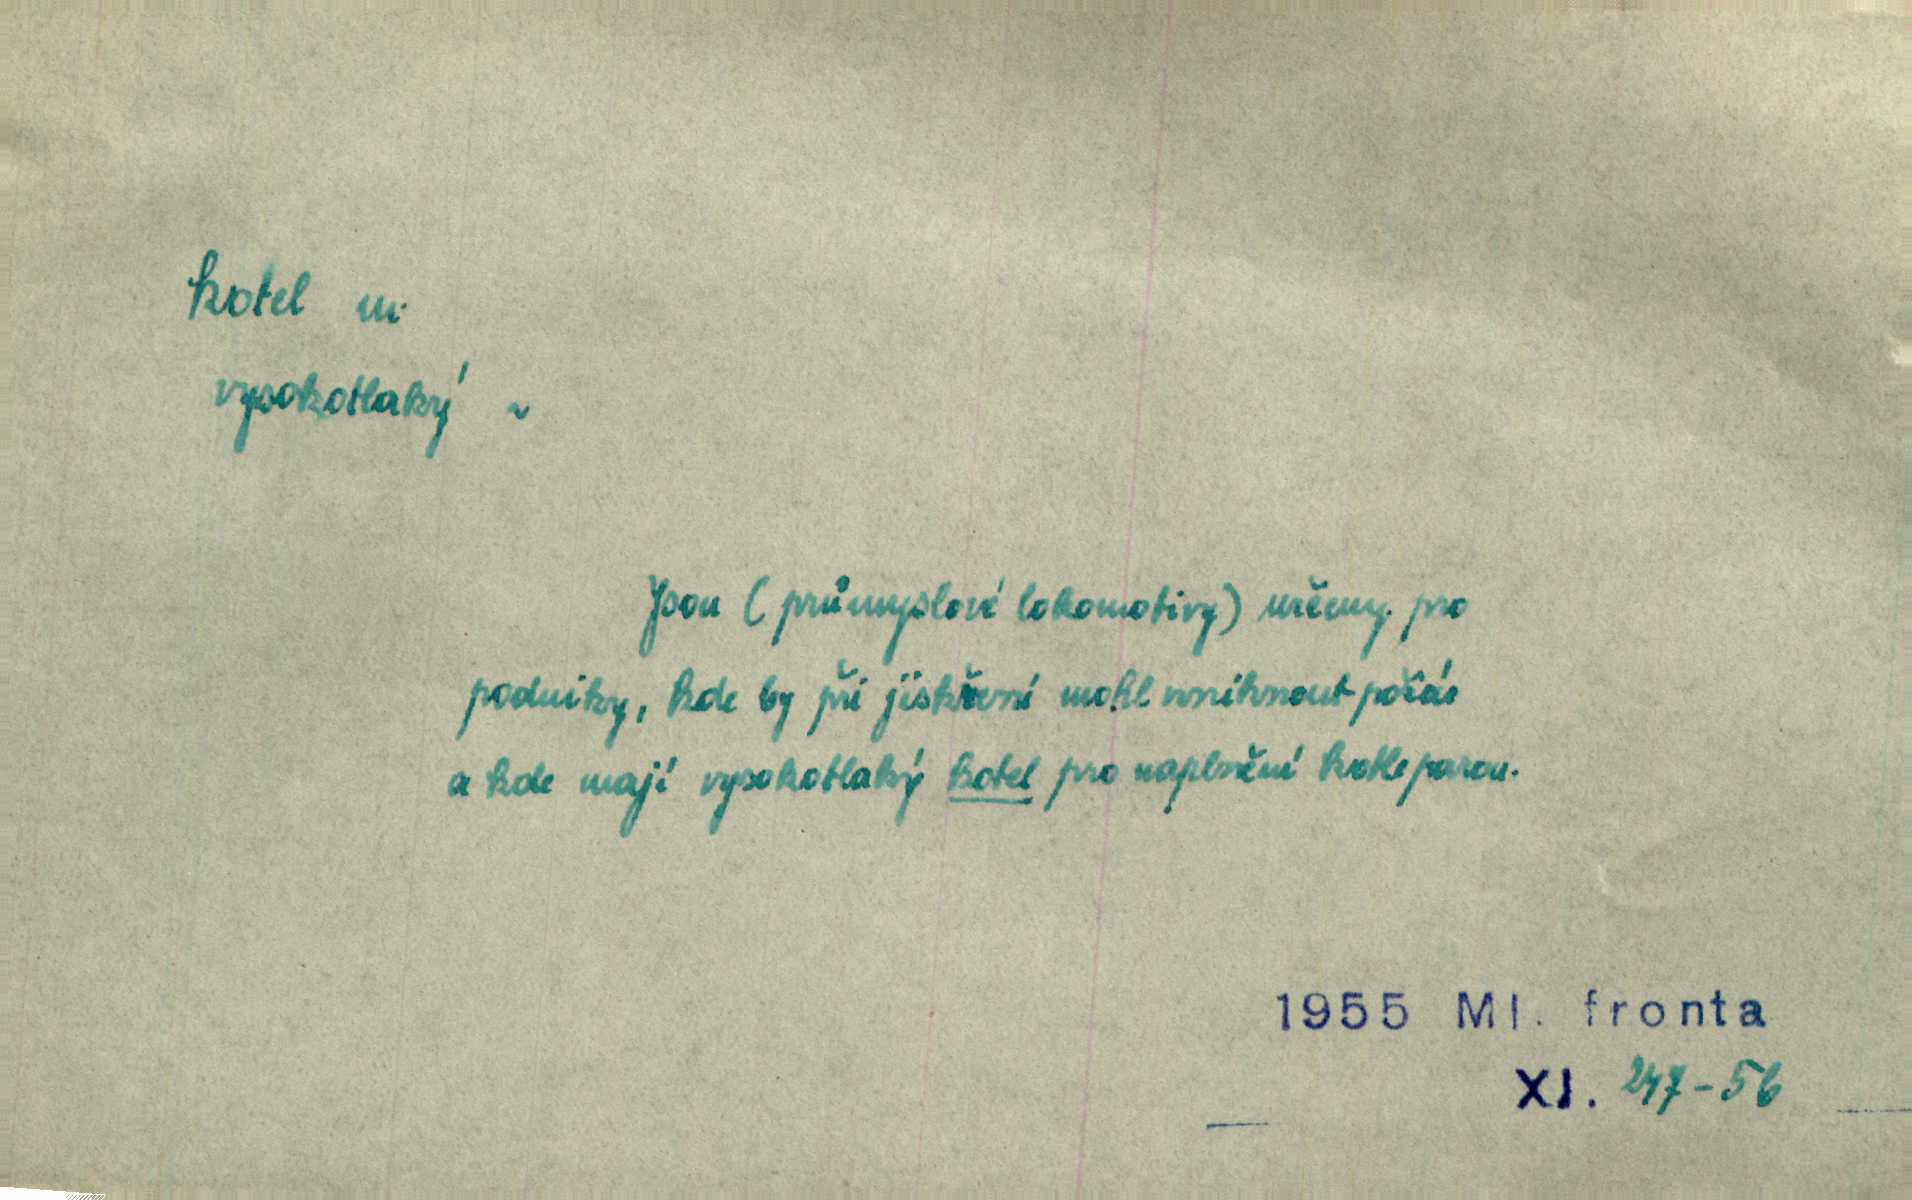 kotel m.
vysokotlaký ~
Jsou (průmyslové lokomotivy) určeny pro
podniky, kde by při jiskření mohl vzniknout požár
a kde mají vysokotlaký kotel pro naplnění kotle parou.
1955 Ml. fronta
XI. 247-56